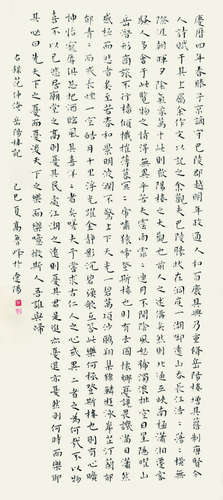 慶曆四年春滕子京謫守巴陵郡越明年政通人和百廢具興乃重修岳陽樓增其舊制刻唐賢今
人詩賦于其上屬余作文以記之余觀夫巴陵勝狀在洞庭一湖銜遠山吞長江浩浩湯湯橫無
際涯朝暉夕陰氣象萬千此則岳陽樓之大觀也前人之述備矣然則北通巫峽南極瀟湘遷客
騷人多會于此覽物之情得無異乎若夫霪雨霏霏連月不開陰風怒號濁浪排空日星隱曜山
岳潛形商旅不行檣傾楫摧薄暮冥冥虎嘯猿啼登斯樓也則有去國懷鄉憂讒畏譏滿目蕭然
感極而悲者矣至若春和景明波瀾不驚上下天光一碧萬頃沙鷗翔集錦鱗游泳岸芷汀蘭郁
郁青青而或長煙一空皓月千里浮光躍金靜影沉璧漁歌互答此樂何極登斯樓也則有心曠
神怡寵辱偕忘把酒臨風其喜洋洋者矣嗟夫予嘗求古仁人之心或異二者之為何哉不以物
喜不以己悲居廟堂之高則憂其民處江湖之遠則憂其君是進亦憂退亦憂然則何時而樂耶
其必曰先天下之憂而憂後天下之樂而樂歟噫微斯人吾誰與歸
右錄范仲淹岳陽樓記 乙巳夏